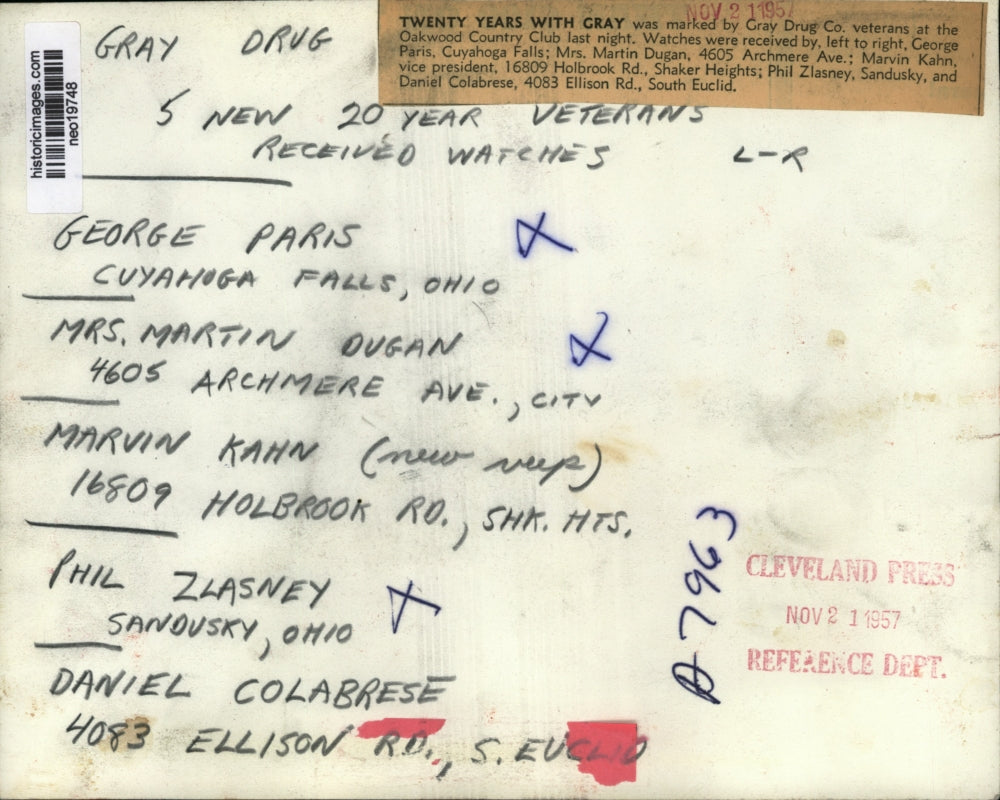 historicimages.com
neo19748
NOV 2 1 1957
TWENTY YEARS WITH GRAY was marked by Gray Drug Co. veterans at the
Oakwood Country Club last night. Watches were received by, left to right, George
Paris, Cuyahoga Falls; Mrs. Martin Dugan, 4605 Archmere Ave.; Marvin Kahn,
vice president, 16809 Holbrook Rd., Shaker Heights; Phil Zlasney, Sandusky, and
Daniel Colabrese, 4083 Ellison Rd., South Euclid.
GRAY DRUG
5 NEW 20 YEAR VETERANS
RECEIVED WATCHES L-R
GEORGE PARIS X
CUYAHOGA FALLS, OHIO
MRS. MARTIN DUGAN X
4605 ARCHMERE AVE., CITY
MARVIN KAHN (new veep)
16809 HOLBROOK RD., SHK. HTS.
PHIL ZLASNEY X
SANDUSKY, OHIO
DANIEL COLABRESE
4083 ELLISON RD., S. EUCLID
A-7963
CLEVELAND PRESS
NOV 2 1 1957
REFERENCE DEPT.